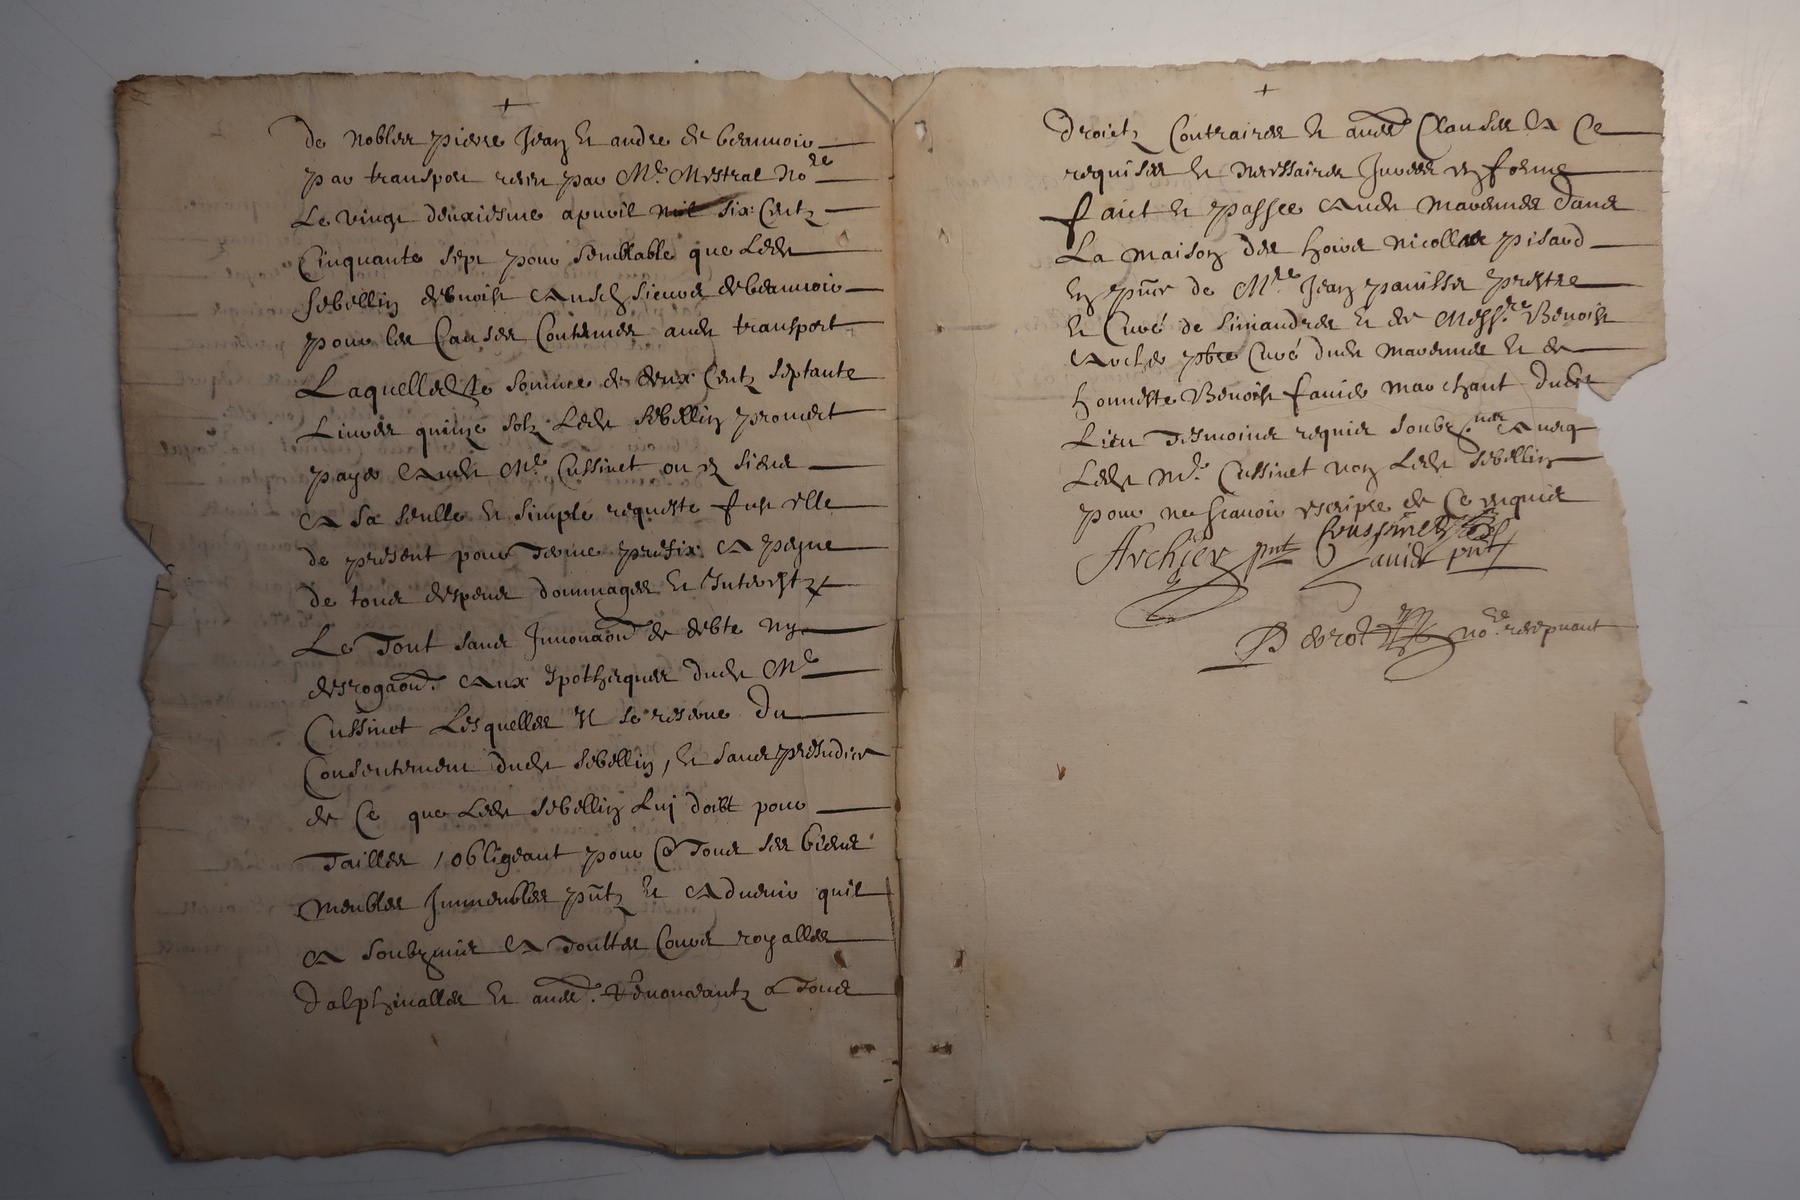 +
De nobles pierre Jean et andre de beauuoir
par transport receu par Me Mestral nore
Le vingt deuxiesme apuril mil six Centz
Cinquante sept pour semblable que Ledt
sebellin debuoit ausdz sieurs de beauuoir
pour les Causes Contenues audt transport
Laquelle dte somme de deux Centz septante
Liures quinze solz Ledt sebellin promect
payer audt Me Cussinet ou es siens
a sa seulle et simple requeste fust elle
de present pour terme prefix a peyne
de tous despens dommages et Interestz
Le Tout sans Innouaon de debte ny
desrogaon aux ypotheques dudt Me
Cussinet Lesquelles Il se reserue du
Consentement dudt sebellin, et sans preiudice
de Ce que Ledt sebellin Luy doibt pour
Tailles, obligeant pour Ce Tous ses biens
meubles Immeubles pntz et aduenir quil
a soubzmis a Touttes Cours royalles
Dalphinalles et aues. Renonceantz a Tous
+
droictz Contraires et aues Clauses a Ce
requises et necessaires Jurees en forme
faict et passee audt marennes dans
La maison des hoirs nicollas pisard
en pnce de Mre Jean panisset prestre
et Curé de simandres et de Messre Benoist
Archer pbre Curé dudt marennes et de
honneste Benoist fauier marchant dudt
Lieu Tesmoins requis soubznes auecq
Ledt Me Cussinet non Ledt sebellin
pour ne scauoir escripre de Ce requis
Archier pnt Cussinet
fauier pnt
Perrot nore receuant